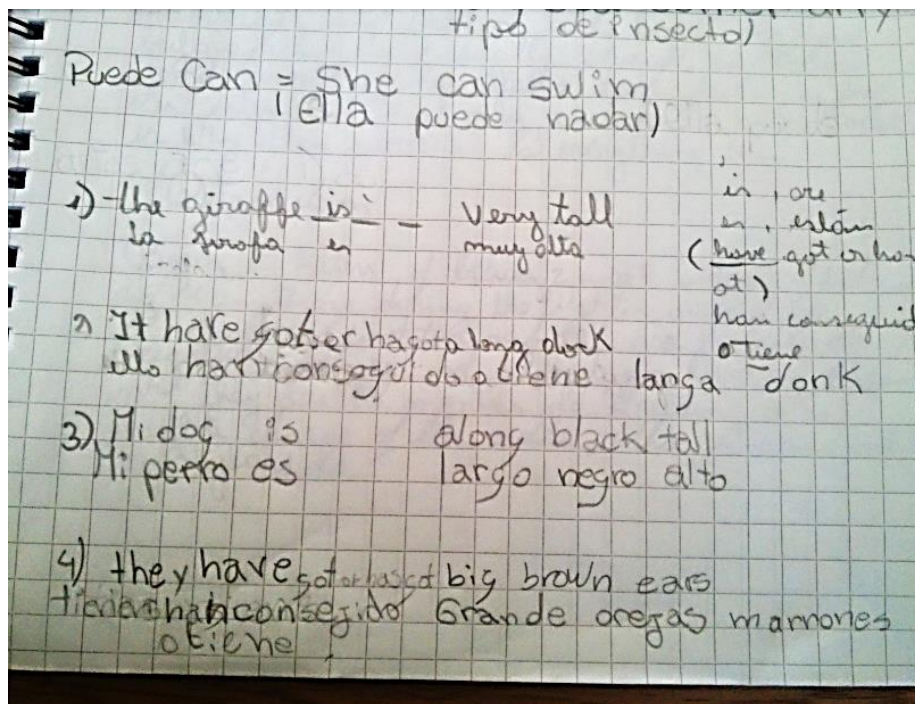 tipo de insecto)
Puede Can = She can swim
(Ella puede nadar)
1) the giraffe is - very tall
la girafa es muy alta
is, are
es, están
(have got or ha
ot)
han conseguid
o tiene
2) It have got or has got a long donk
ello han conseguido o tiene langa donk
3) Mi dog is along black tall
Mi perro es largo negro alto
4) they have got or has got big brown ears
tienen han consegido Grande oregas marrones
o tiene